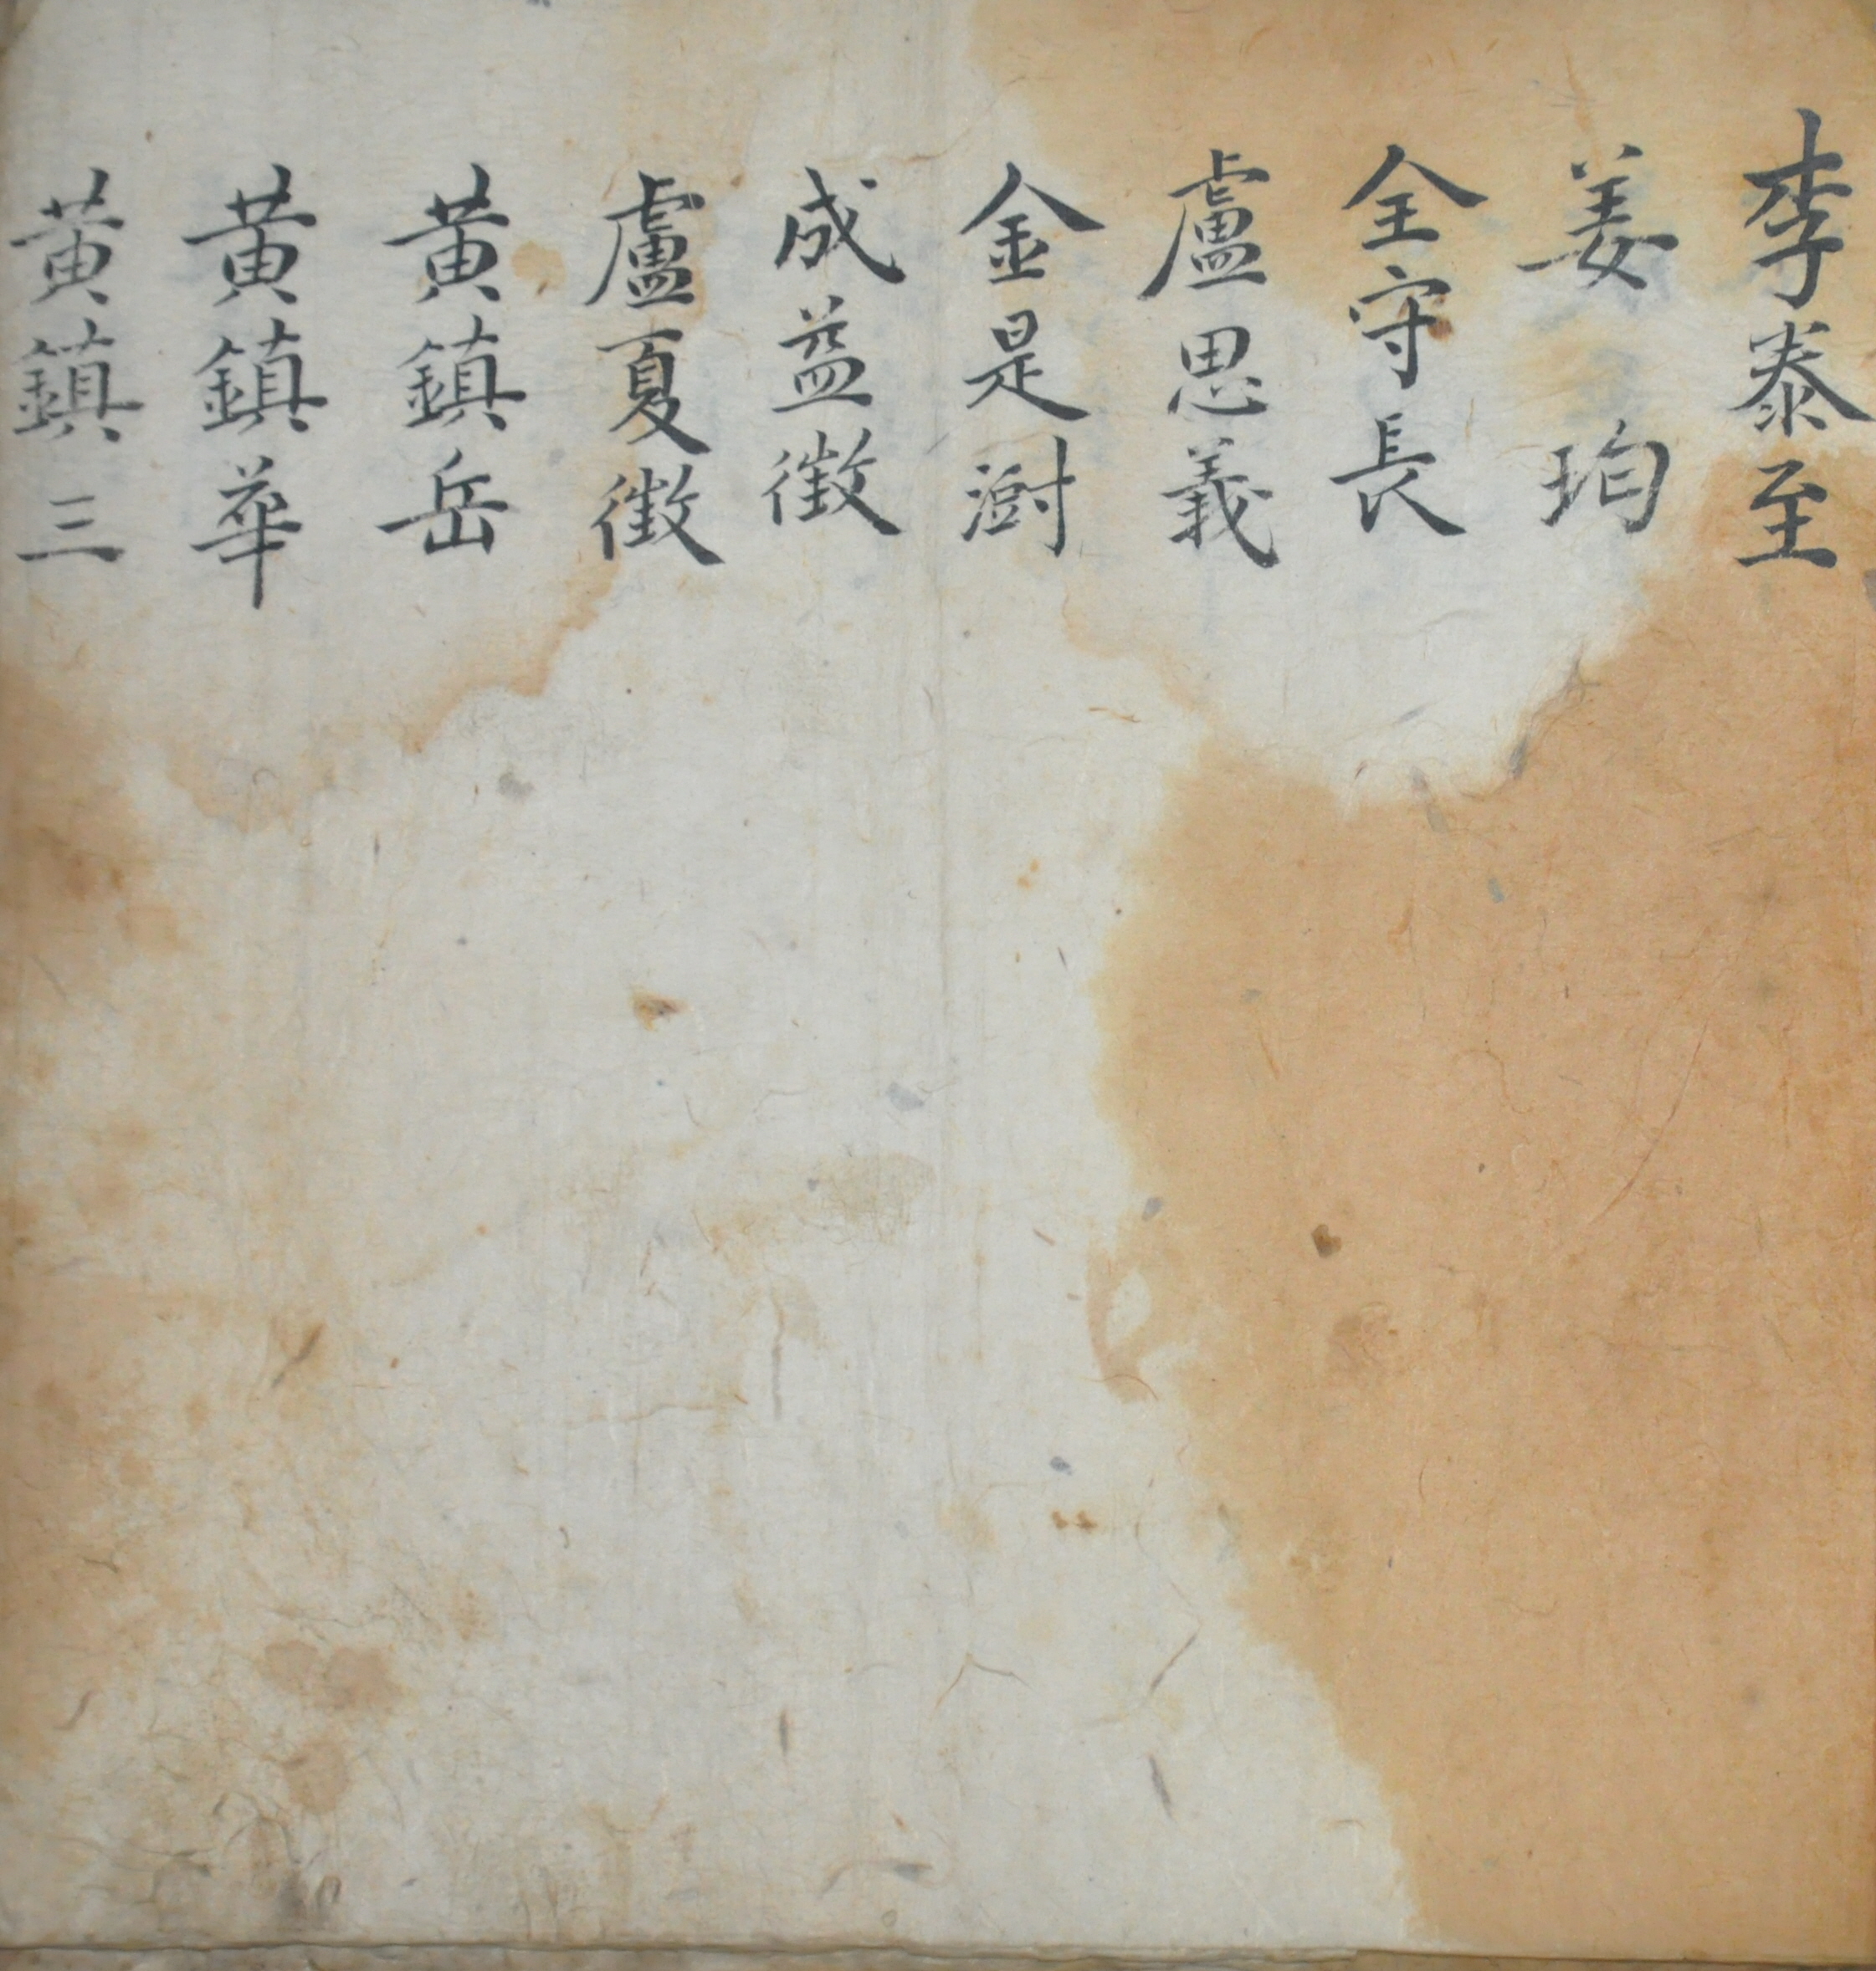 李泰至
姜珣
全守長
盧思義
金是澍
成益徵
盧夏徵
黃鎭岳
黃鎭華
黃鎭三